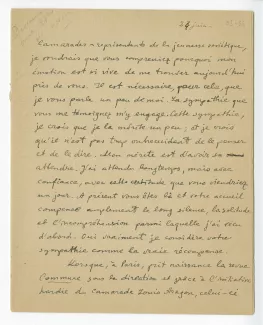 24 juin.
Camarades - représentants de la jeunesse soviétique,
je voudrais que vous compreniez pourquoi mon
émotion est si vive de me trouver aujourd'hui
près de vous. Il est nécessaire, pour cela, que
je vous parle un peu de moi. La sympathie que
vous me témoignez m'y engage. Cette sympathie,
je crois que je la mérite un peu; et je crois
qu'il n'est pas trop outrecuidant de le penser
et de le dire. Mon mérite est d'avoir su
attendre. J'ai attendu longtemps, mais avec
confiance, avec cette certitude que vous viendriez
un jour. A présent vous êtes là et votre accueil
compense amplement le long silence, la solitude
et l'incompréhension parmi laquelle j'ai vécu
d'abord. Oui vraiment je considère votre
sympathie comme la vraie récompense.
Lorsque, à Paris, prit naissance la revue
Commune sous la direction et grâce à l'initiative
hardie du camarade Louis Aragon, celui-ci